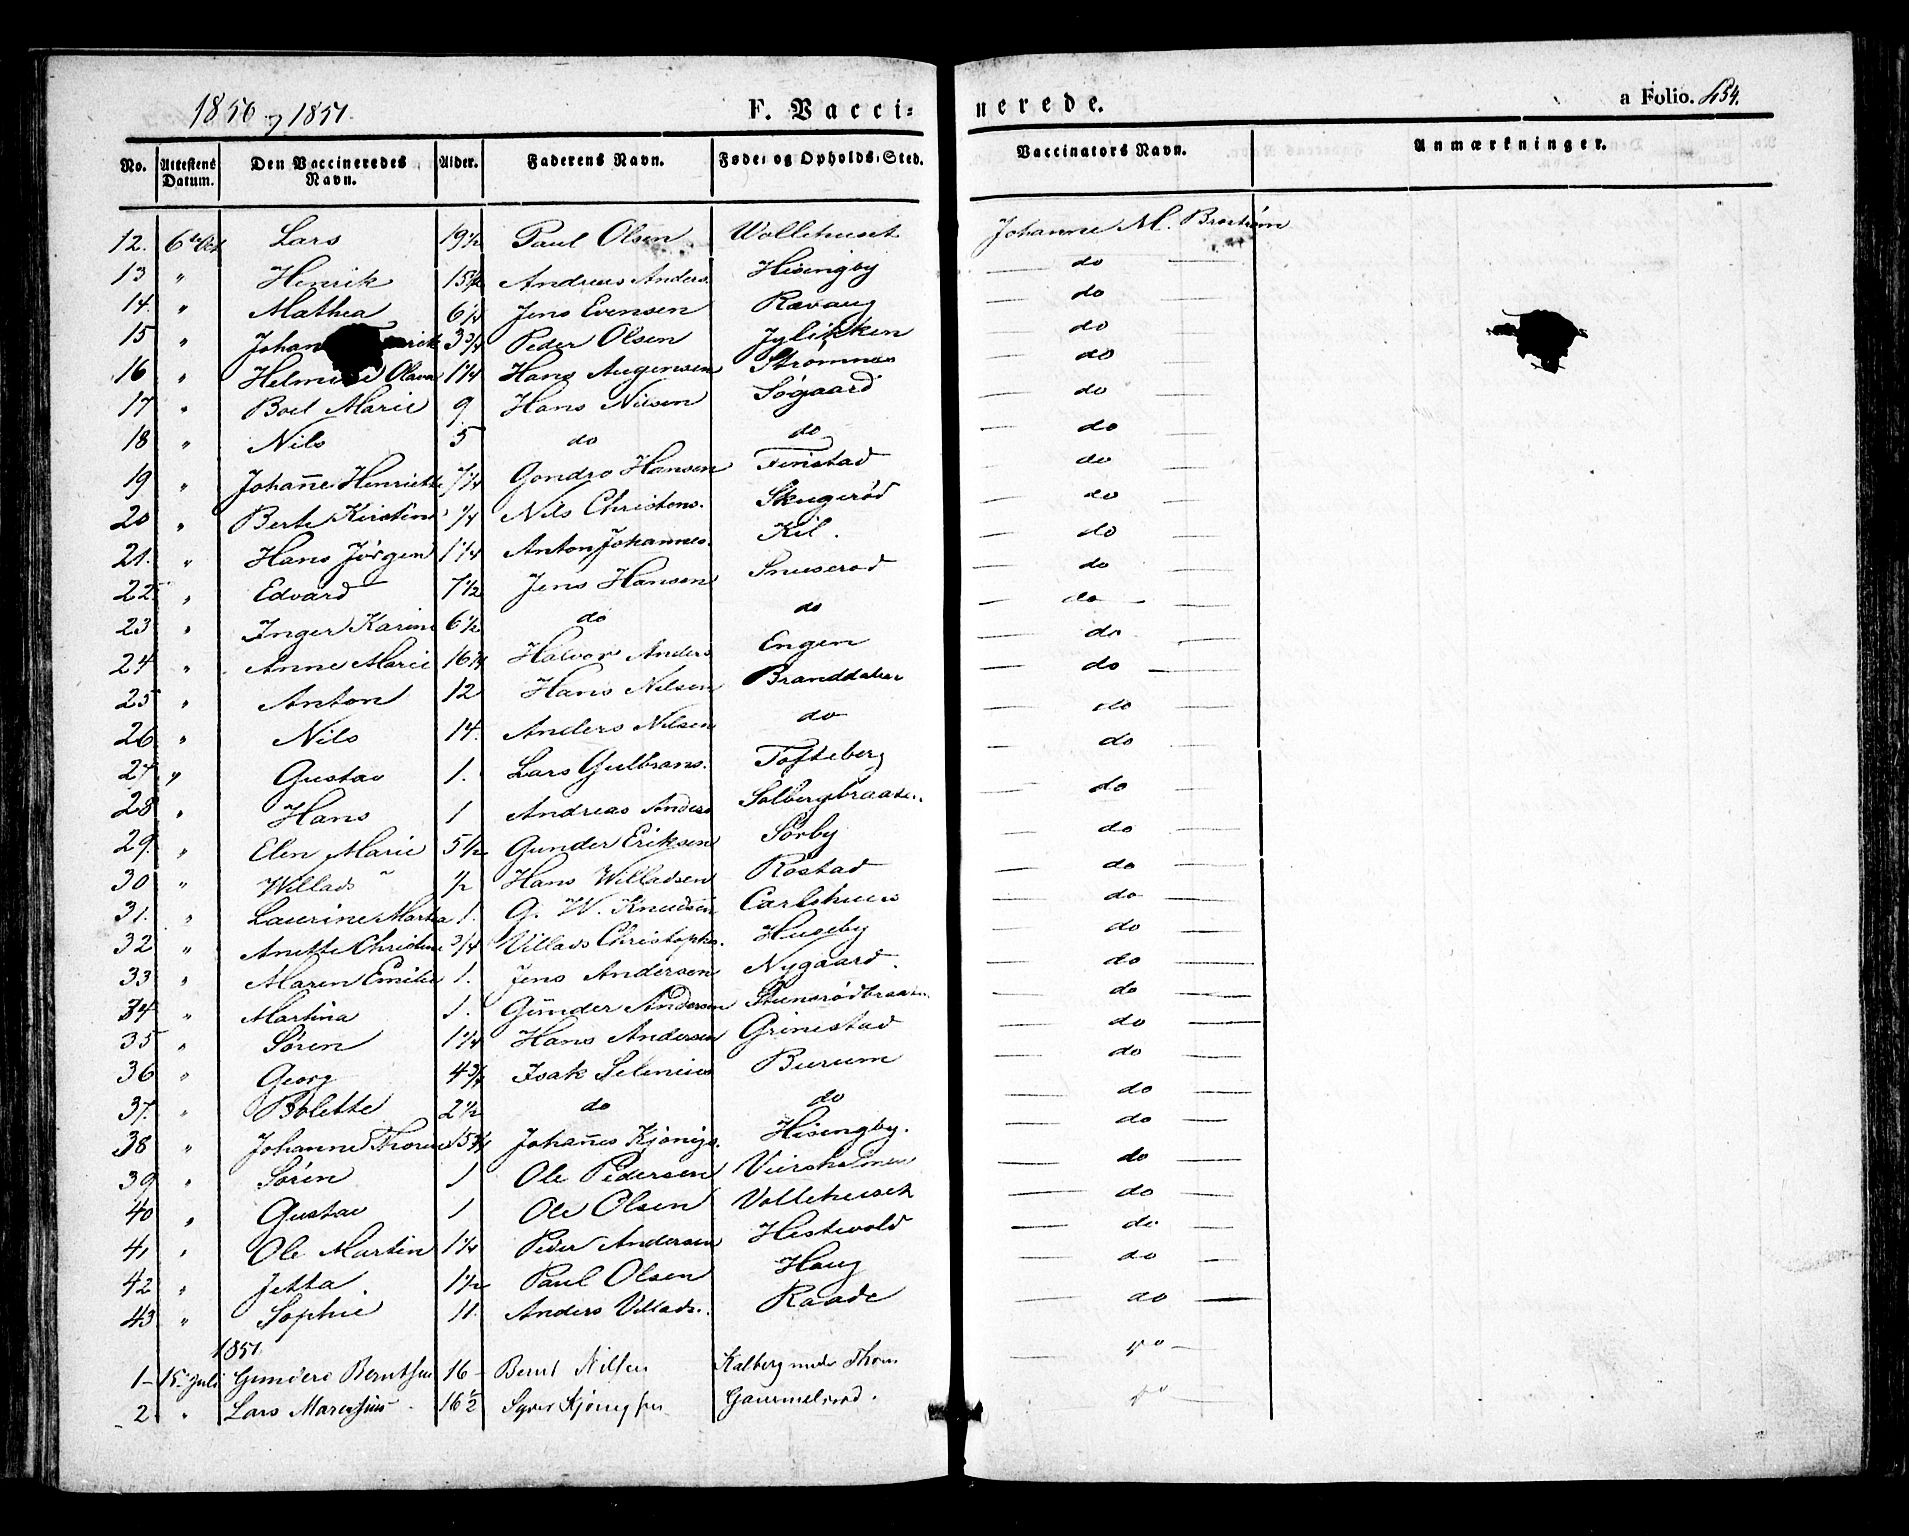 1850 og 1851.
F. Vaccinerede.
a Folio. 454.
No. Attestens Datum. Den Vaccineredes Navn. Alder. Faderens Navn. Føde- og Opholds-Sted. Vaccinators Navn. Anmærkninger.
12. 6te Oct Lars 19½ Paul Olsen Wollehuset Johanne M. Brostrøm
13 " Henrik 15½ Andreas Anders. Hisingby — do —
14. " Mathea 6¼ Jens Evensen Rævaug — do —
15 " Johan 3¾ Peder Olsen — do —
16 " Olava 1¼ Hans Augensen Strømnes — do —
17 " Boel Marie 9 Hans Nilsen Søgaard — do —
18 " Nils 5 do do — do —
19 " Johanne Henriette 7¼ Gondro Hansen Finstad — do —
20 " Berte Kirstine ¼ Nils Christens. Skugerød — do —
21. " Hans Jørgen 1¼ Anton Johannes. Kil. — do —
22 " Edvard 7½ Jens Hansen Snuserød — do —
23 " Inger Karine 6½ do do — do —
24 " Anne Marie 16¾ Halvor Anders Engen — do —
25 " Anton 12 Hans Nilsen — do —
26 " Nils 14. Anders Nilsen do — do —
27 " Gustav 1. Lars Gulbrans. Tofteberg — do —
28 " Hans 1 Andreas Anders Solbergbraaten — do —
29. " Elen Marie 5½ Gunder Eriksen Sørby — do —
30 " Willads ½ Hans Willadsen Røstad — do —
31. " Laurine Martea 1. G. W. Knudsen Carlshuus — do —
32 " Anette Christine ¾ Villads Christophs. Hugeby — do —
33 " Maren Emilie 1. Jens Andersen Nygaard. — do —
34 " Martina 1. Günder Andersen Stensrødbraaten — do —
35 " Søren 1¼ Hans Andersen Grinestad — do —
36 " Georg 4¾ Isak Selenius Burum — do —
37. " Bolette 2½ do do — do —
38 " Johanne Thorine 15¾ Johannes Kjönigs. Hisingby. — do —
39 " Søren 1 Ole Pedersen — do —
40 " Gustav 1 Ole Olsen Vollehuset — do —
41 " Ole Martin 1¼ Peder Andersen Hestevold — do —
42 " Jetta 1½ Paul Olsen Haug — do —
43 " Sophie 11. Anders Villads. Raade — do —
1851.
1 – 15 Juli Gundero Berntsen 16 – Bernt Nilsen Kalberg under Thom — do —
2 " Lars 16½ Syver — do —